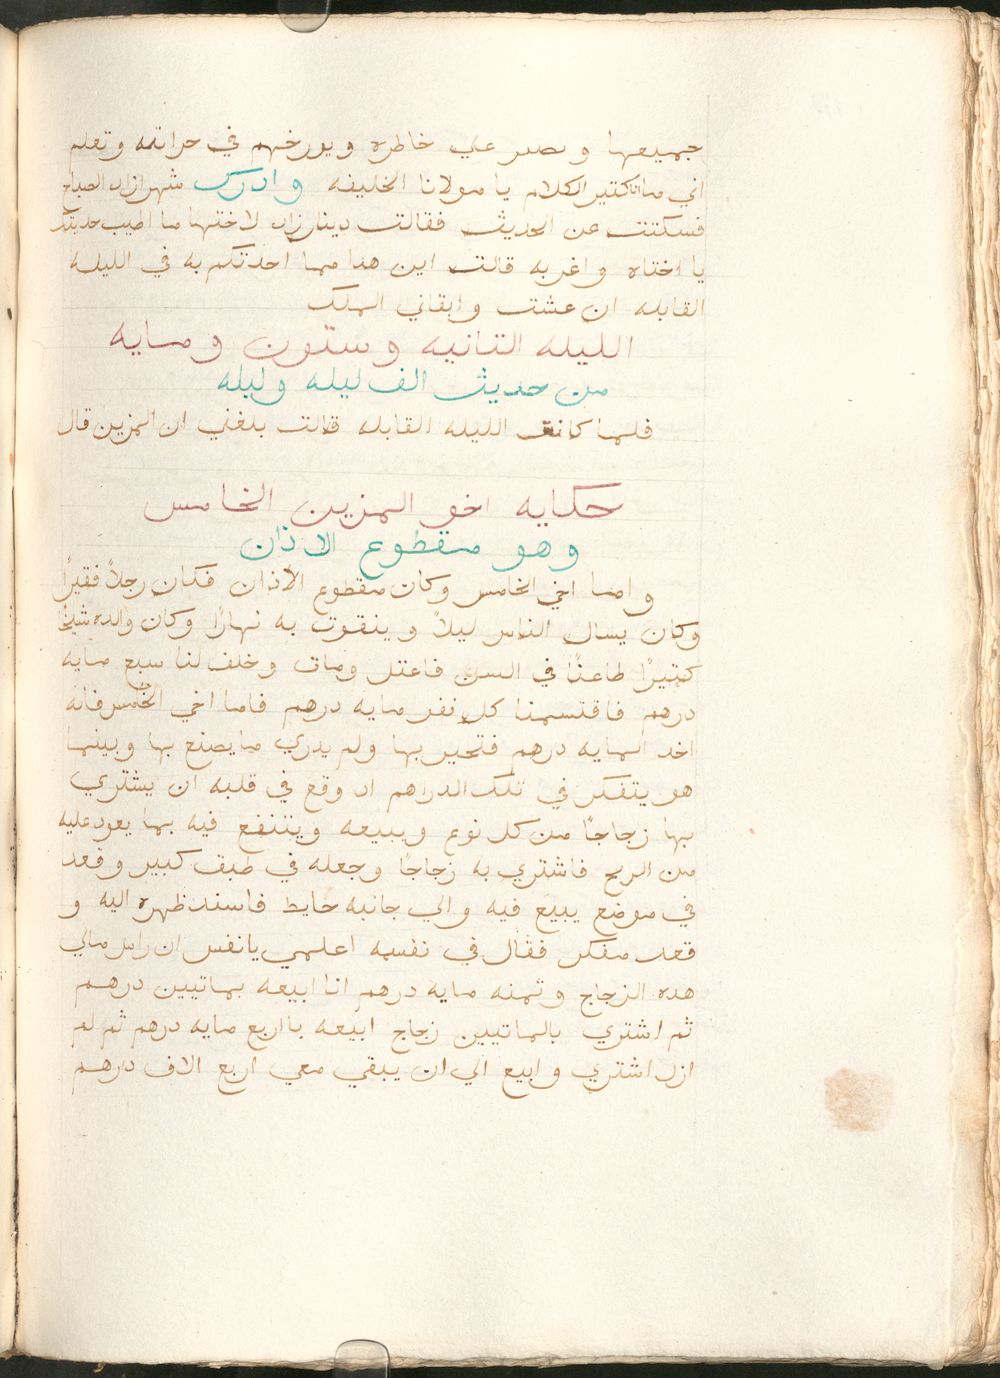 جميعها وتصبر علي خاطره ويورخهم في خزانته وتعلم
اني ما انا كتير الكلام يا مولانا الخليفه وادرك شهرازاد الصباح
فسكتت عن الحديث فقالت دينارزاد لاختها ما اطيب حديثك
يا اختاه واغربه قالت اين هدا مما احدتكم به في الليله
القابله ان عشت وابقاني الملك
الليله التانيه وستون ومايه
من حديث الف ليله وليله
فلما كانت الليله القابله قالت بلغني ان المزين قال
حكايه اخو المزين الخامس
وهو مقطوع الاذان
واما اخي الخامس وكان مقطوع الاذان فكان رجلاً فقيرًا
وكان يسال الناس ليلاً وينقوت به نهارًا وكان والده شيخًا
كبيرًا طاعنًا في السن فاعتل ومات وخلف لنا سبع مايه
درهم فاقتسمنا كل نفر مايه درهم فاما اخي الخامس فانه
اخد المايه درهم فتحير بها ولم يدري ما يصنع بها وبينما
هو يتفكر في تلك الدراهم اد وقع في قلبه ان يشتري
بها زجاجًا من كل نوع ويبيعه ويتنفع فيه بما يعود عليه
من الربح فاشتري به زجاجًا وجعله في طبق كبير وقعد
في موضع يبيع فيه والي جانبه حايط فاسند ظهره اليه و
قعد مفكر فقال في نفسه اعلمي يا نفس ان راس مالي
هده الزجاج وتمنه مايه درهم انا ابيعه بماتيين درهم
ثم اشتري بالماتيين زجاج ابيعه باربع مايه درهم ثم لم
ازل اشتري وابيع الي ان يبقي معي اربع الاف درهم